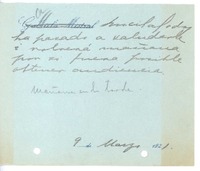 Lucila Godoy
ha pasado a saludarle
i volverá mañana
por si fuera posible
obtener audiencia
Mañana en la tarde
9 de Marzo 1921.